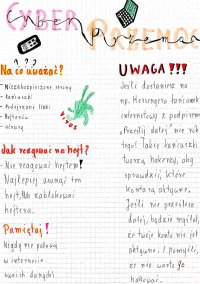 CYBER PRZEMOC
Na co uważać?
- Niezabezpieczone strony
- Łańcuszki
- Podejrzane linki
- Hejterów
- Wirusy
VIRUS
Jak reagować na hejt?
- Nie reagować hejtem!
Najlepiej usunąć ten
hejt, lub zablokować
hejtera.
Pamiętaj!
Nigdy nie podawaj
w internecie
swoich danych!
UWAGA!!!
Jeśli dostaniesz na
np. Messengera łańcuszek
internetowy z podpisem
"Prześlij dalej nie rób
tego! Takie łańcuszki
tworzą hakerzy, aby
sprawdzić, które
konta są aktywne.
Jeśli nie prześlesz
dalej, będzie myślał,
że twoje konto nie jest
aktywne. I pomyśli,
że nie warto go
hakować.